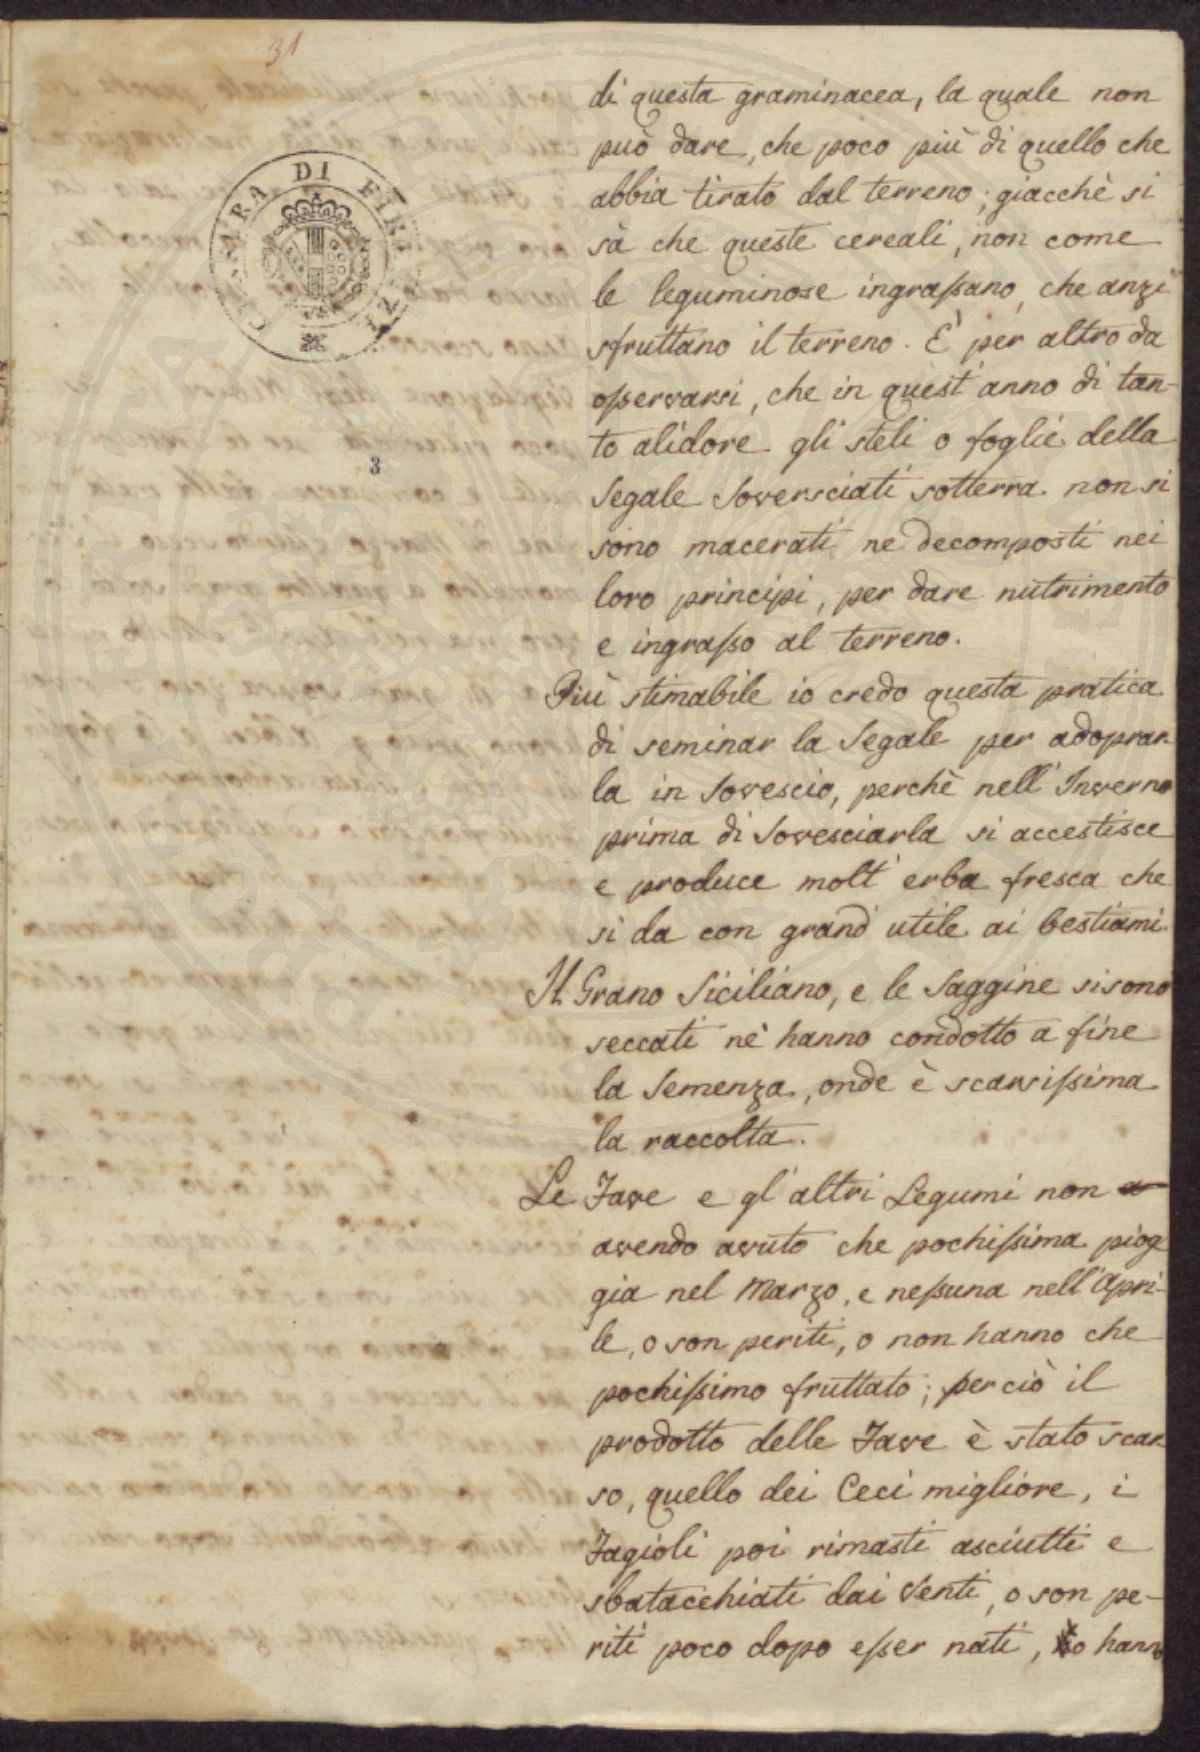 31
CAMARA DI FIRENZE
3
di questa graminacea, la quale non
può dare, che poco più di quello che
abbia tirato dal terreno; giacchè si
sà che queste cereali, non come
le leguminose ingrassano, che anzi
sfruttano il terreno. È per altro da
osservarsi, che in quest'anno di tan-
to alidore gli steli o foglie della
Segale soversciati sotterra non si
sono macerati ne decomposti nei
loro principj, per dare nutrimento
e ingrasso al terreno.
Più stimabile io credo questa pratica
di seminar la Segale per adoprar
la in sovescio, perchè nell'Inverno
prima di sovesciarla si accestisce
e produce molt'erba fresca che
si da con grand'utile ai bestiami.
Il Grano Siciliano, e le Saggine si sono
seccati nè hanno condotto a fine
la Semenza, onde è scarsissima
la raccolta.
Le Fave e gl'altri Legumi non a
avendo avuto che pochissima piog
gia nel Marzo, e nessuna nell'Apri-
le, o son periti, o non hanno che
pochissimo fruttato; perciò il
prodotto delle Fave è stato scar
so, quello dei Ceci migliore, i
Fagioli poi rimasti asciutti e
sbatacchiati dai Venti, o son pe-
riti poco dopo esser nati, o hanno